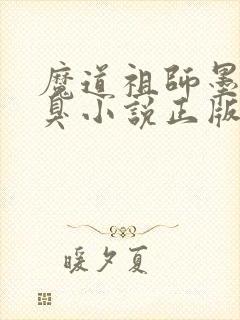 魔道祖師墨
臭小說正版
暖夕夏